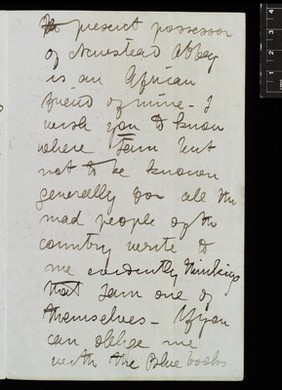 The present possessor
of Newstead Abbey
is an African
friend of mine - I
wish you to know
where I am but
not to be known
generally for all the
mad people of the
country write to
me evidently thinking
that I am one of
themselves - If you
can oblige me
with the Blue books
1
2
3
4